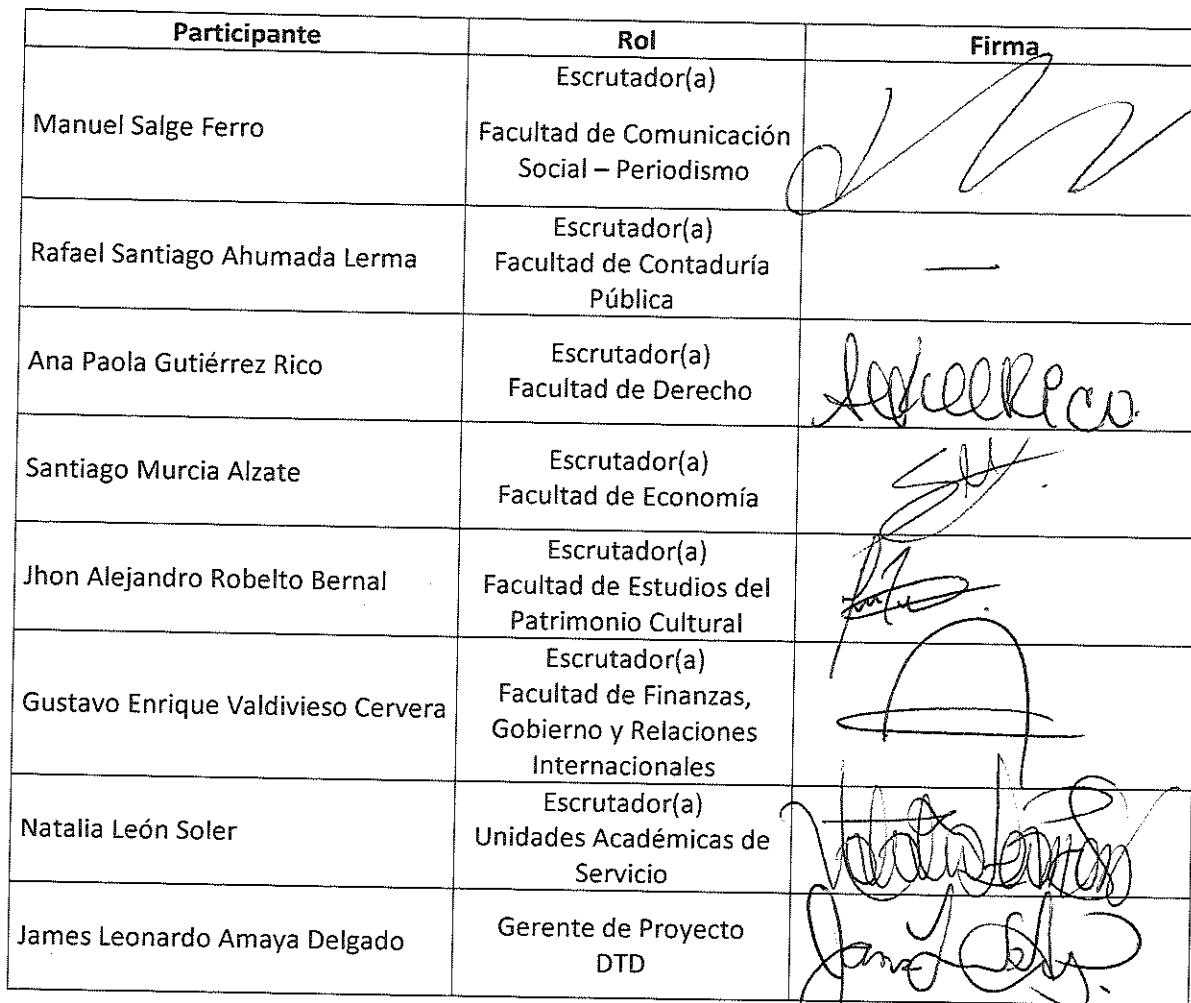 Participante Rol Firma
Manuel Salge Ferro
Escrutador(a)
Facultad de Comunicación
Social – Periodismo
Rafael Santiago Ahumada Lerma
Escrutador(a)
Facultad de Contaduría
Pública
—
Ana Paola Gutiérrez Rico
Escrutador(a)
Facultad de Derecho
Santiago Murcia Alzate
Escrutador(a)
Facultad de Economía
Jhon Alejandro Robelto Bernal
Escrutador(a)
Facultad de Estudios del
Patrimonio Cultural
Gustavo Enrique Valdivieso Cervera
Escrutador(a)
Facultad de Finanzas,
Gobierno y Relaciones
Internacionales
Natalia León Soler
Escrutador(a)
Unidades Académicas de
Servicio
James Leonardo Amaya Delgado
Gerente de Proyecto
DTD